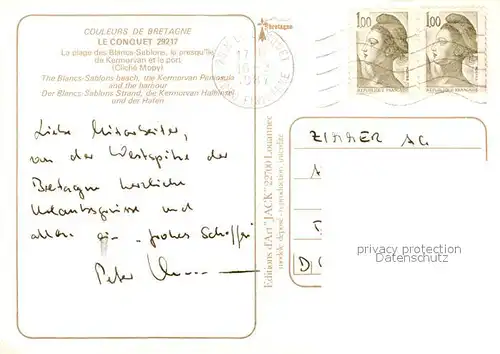 COULEURS DE BRETAGNE
LE CONQUET 29217
La plage des Blancs-Sablons, la presqu'île
de Kermorvan et le port
(Cliché Mopy)
The Blancs-Sablons beach, the Kermorvan Peninsula
and the harbour
Der Blancs-Sablons Strand, die Kermorvan Halbinsel
und der Hafen
Liebe Mitarbeiter,
von der Westspitze der
Bretagne herzliche
Urlaubsgrüsse und
allen ein frohes Schaffen
Peter
bretagne
Editions d'Art "JACK" 22700 Louannec
modèle déposé - reproduction interdite
1,00
REPUBLIQUE FRANÇAISE
1,00
REPUBLIQUE FRANÇAISE
ZIMMER AG
privacy protection
Datenschutz